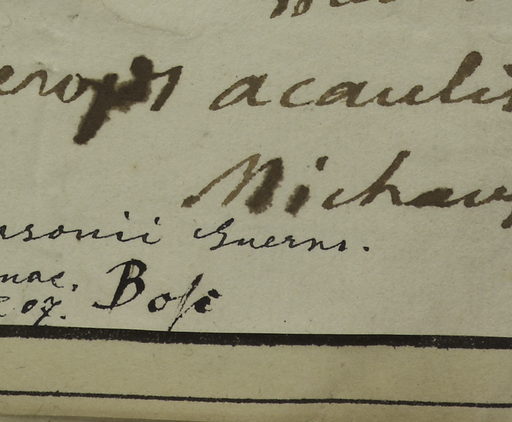 erops acaulis
Michaux
nsonii Guerns.
mac. Bosc
207.